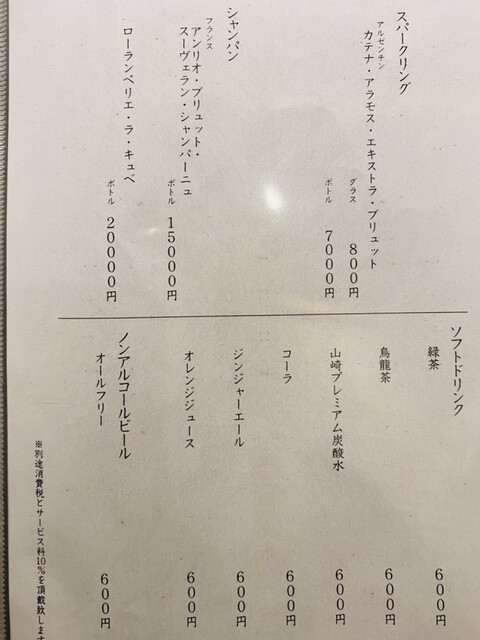 スパークリング
アルゼンチン
カテナ・アラモス・エキストラ・ブリュット
グラス 800円
ボトル 7000円
シャンパン
フランス
アンリオ・ブリュット・
スーヴェラン・シャンパーニュ
ボトル 15000円
ローランペリエ・ラ・キュベ
ボトル 20000円
ソフトドリンク
緑茶 600円
烏龍茶 600円
山崎プレミアム炭酸水 600円
コーラ 600円
ジンジャーエール 600円
オレンジジュース 600円
ノンアルコールビール
オールフリー 600円
※別途消費税とサービス料10%を頂戴致しま